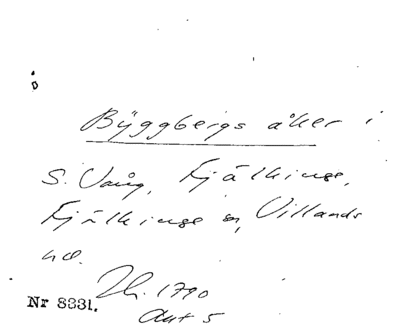 Byggbergs åker i
S. Vång, Fjälkinge,
Fjälkinge sn, Villands
hd.
Lh. 1790
Akt 5
Nr 8831.